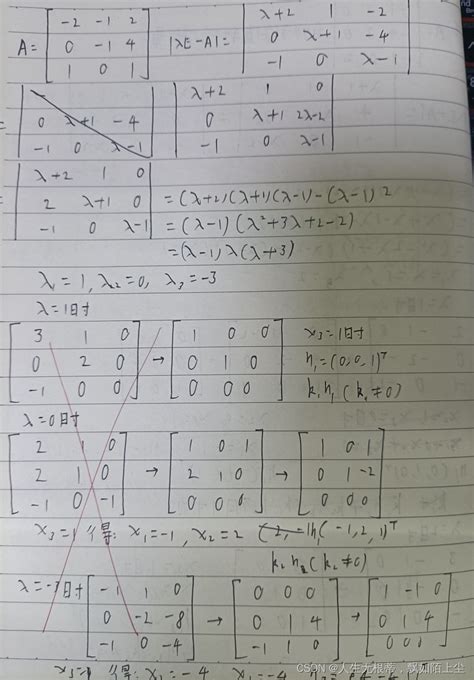 A = [ -2 -1 2 ; 0 -1 4 ; 1 0 1 ] |λE-A| = | λ+2 1 -2 ; 0 λ+1 -4 ; -1 0 λ-1 |
= | 0 λ+1 -4 ; -1 0 λ-1 | | λ+2 1 0 ; 0 λ+1 2λ-2 ; -1 0 λ-1 |
= | λ+2 1 0 ; 2 λ+1 0 ; -1 0 λ-1 | = (λ+2)(λ+1)(λ-1)-(λ-1)2
= (λ-1)(λ²+3λ+2-2)
= (λ-1)λ(λ+3)
λ₁=1, λ₂=0, λ₃=-3
λ=1时
[ 3 1 0 ; 0 2 0 ; -1 0 0 ] → [ 1 0 0 ; 0 1 0 ; 0 0 0 ] x₃=1时
η₁=(0,0,1)ᵀ
k₁η₁(k₁≠0)
λ=0时
[ 2 1 0 ; 2 1 0 ; -1 0 -1 ] → [ 1 0 1 ; 2 1 0 ; 0 0 0 ] → [ 1 0 1 ; 0 1 -2 ; 0 0 0 ]
x₃=1 得: x₁=-1, x₂=2 (-1,2,1)ᵀ
k₂η₂(k₂≠0)
λ=-3时 [ -1 1 0 ; 0 -2 -8 ; -1 0 -4 ] → [ 0 0 0 ; 0 1 4 ; -1 1 0 ] → [ 1 -1 0 ; 0 1 4 ; 0 0 0 ]
x₃=1 得: x₁=-4 x₁=-4
CSDN @人生无根蒂，飘如陌上尘